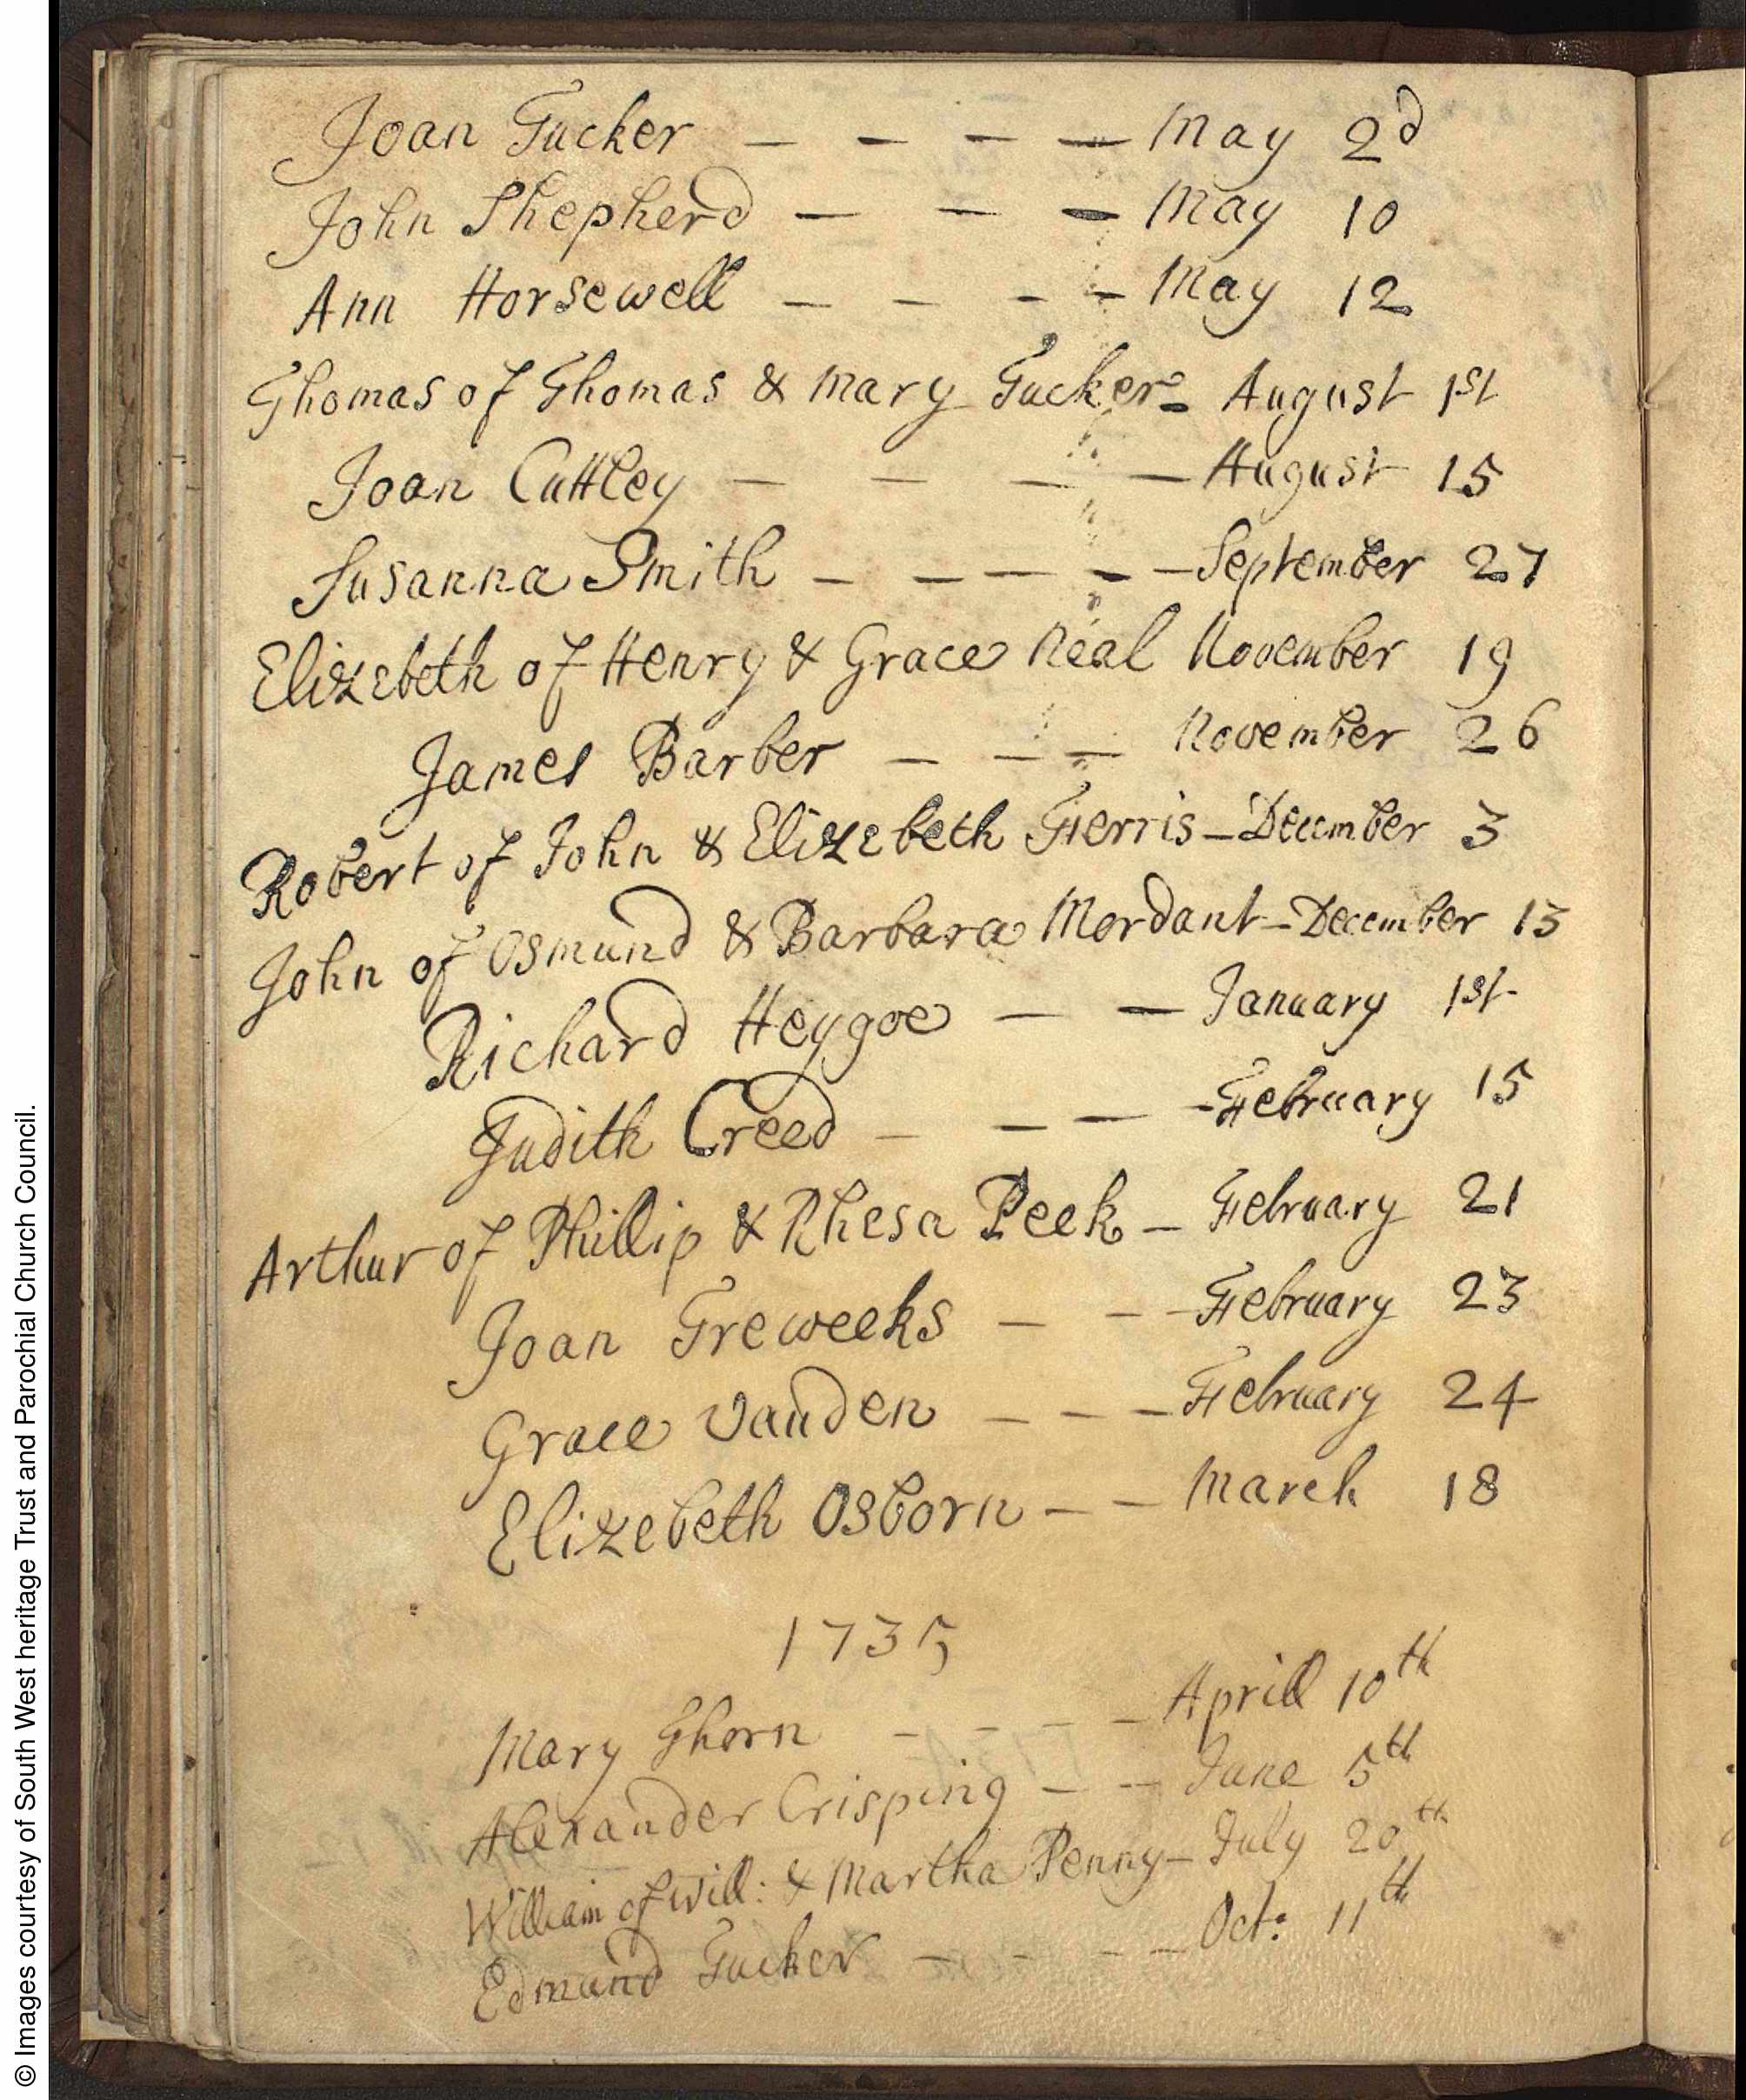 Joan Tucker — — — — May 2d
John Shepherd — — — May 10
Ann Horsewell — — — — May 12
Thomas of Thomas & Mary Tucker - August 1st
Joan Cuttley — — — — August 15
Susanna Smith — — — — — September 27
Elizebeth of Henry & Grace Neal November 19
James Barber — — — November 26
Robert of John & Elizebeth Ferris — December 3
John of Osmund & Barbara Mordant — December 13
Richard Heygoe — — January 1st
Judith Creed — — — - February 15
Arthur of Phillip & Rhesa Peek — February 21
Joan Treweeks — — — February 23
Grace Vauden — — — February 24
Elizebeth Osborn — — March 18
1735
Mary Thorn - - - - Aprill 10th
Alexander Crisping — — June 5th
William of Will: & Martha Penny — July 20th
Edmund Tucker — - - — Oct: 11th
© Images courtesy of South West heritage Trust and Parochial Church Council.